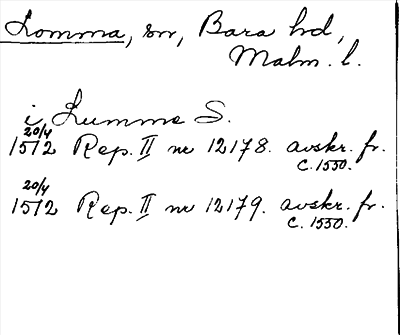 Lomma, sn, Bara hd,
Malm. l.
i Lumme S.
20/4
1512 Rep. II nr 12178. avskr. fr.
c. 1550.
20/4
1512 Rep. II nr 12179. avskr. fr.
c. 1550.